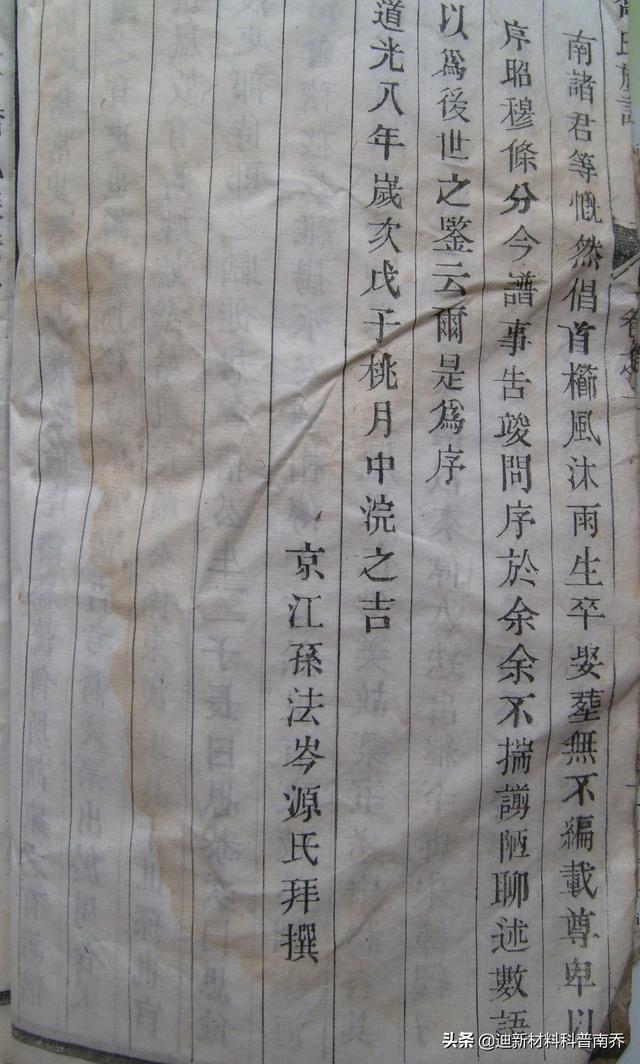 南諸君等慨然倡首櫛風沐雨生卒娶塟無不編載尊卑以
序昭穆條分今譜事告竣問序於余余不揣謭陋聊述數語
以爲後世之鑒云爾是爲序
道光八年歲次戊子桃月中浣之吉
京江孫法岑源氏拜撰
头条 @迪新材料科普南乔